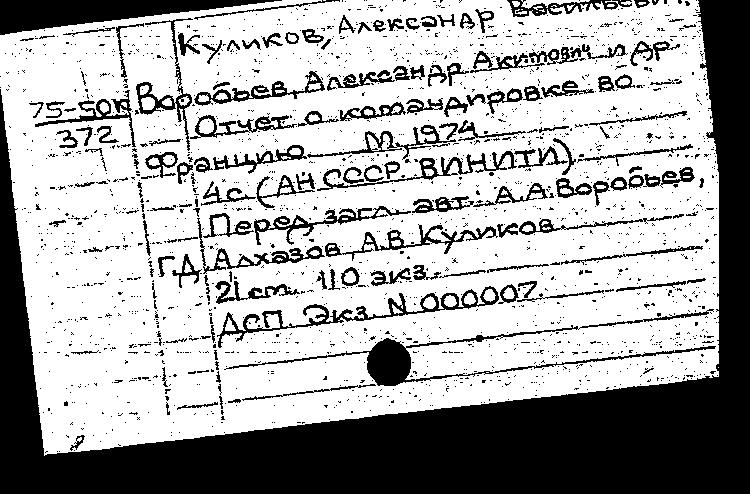 Куликов, Александр Васильевич.
75-50к Воробьев, Александр Акимович и др.
372 Отчет о командировке во
Францию. М., 1974.
4 с. (АН СССР ВИНИТИ).
Перед загл. авт.: А.А. Воробьев,
Г.Д. Алхазов, А.В. Куликов.
21 см. 110 экз.
ДСП. Экз. N 000007.